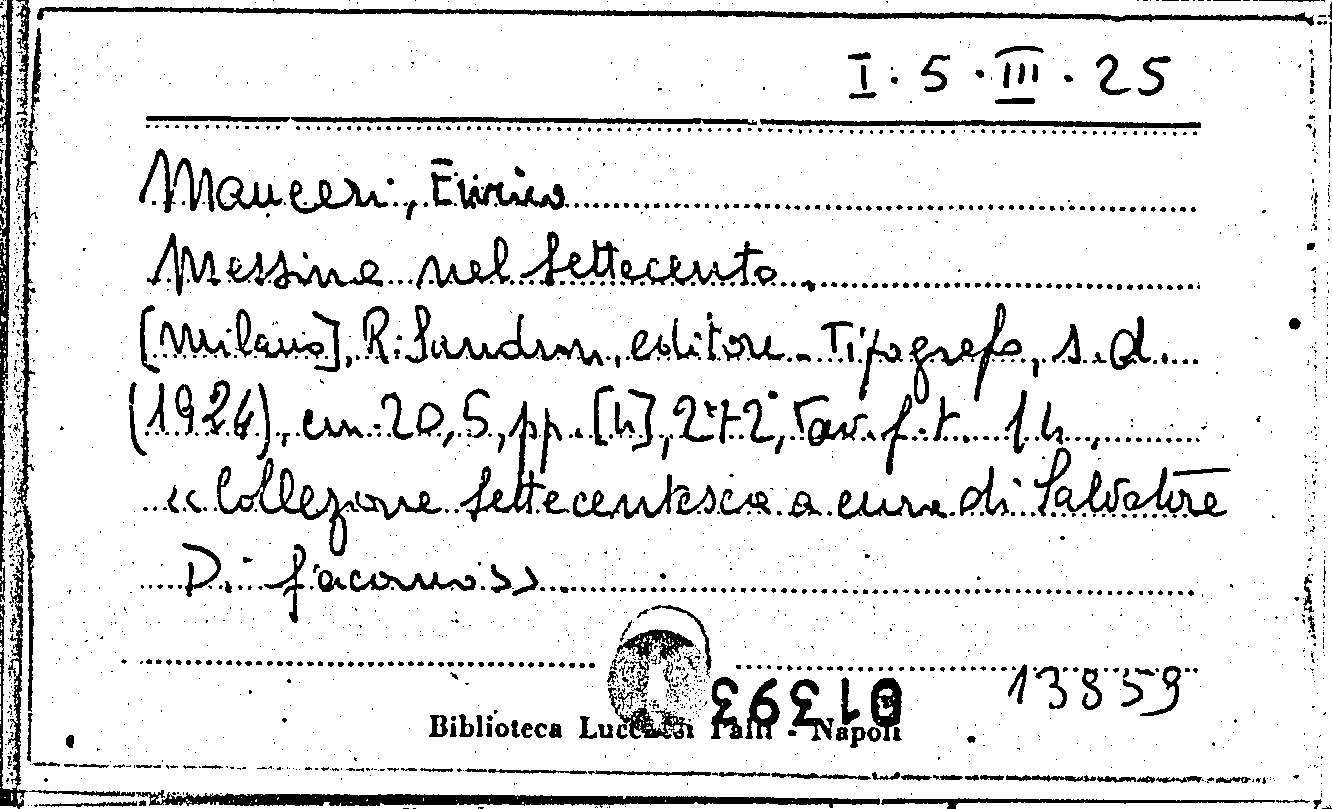 I. 5. III. 25
Mauceri, Enrico
Messina nel Settecento.
[Milano], R. Sandron, editore-Tipografo, s.d.
(1924), cm. 20,5, pp. [4], 272, Tav. f. t. 14.
<<Collezione settecentesca a cura di Salvatore
Di Giacomo>>
13859
01393
Biblioteca Lucchesi Palli - Napoli